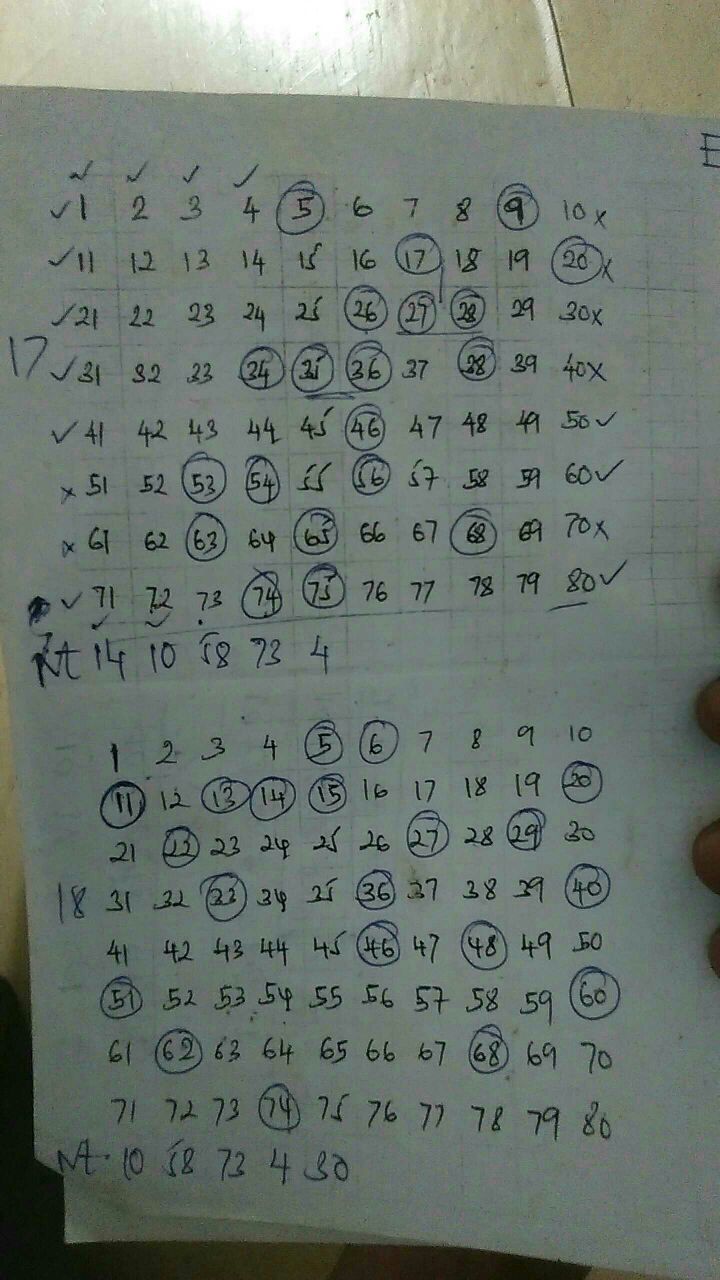 E
1 2 3 4 5 6 7 8 9 10x
11 12 13 14 15 16 17 18 19 20x
21 22 23 24 25 26 27 28 29 30x
17 31 32 33 34 35 36 37 38 39 40x
41 42 43 44 45 46 47 48 49 50✓
x 51 52 53 54 55 56 57 58 59 60✓
x 61 62 63 64 65 66 67 68 69 70x
71 72 73 74 75 76 77 78 79 80✓
Nt 14 10 58 73 4
1 2 3 4 5 6 7 8 9 10
11 12 13 14 15 16 17 18 19 20
21 22 23 24 25 26 27 28 29 30
18 31 32 33 34 35 36 37 38 39 40
41 42 43 44 45 46 47 48 49 50
51 52 53 54 55 56 57 58 59 60
61 62 63 64 65 66 67 68 69 70
71 72 73 74 75 76 77 78 79 80
Nt. 10 58 73 4 30